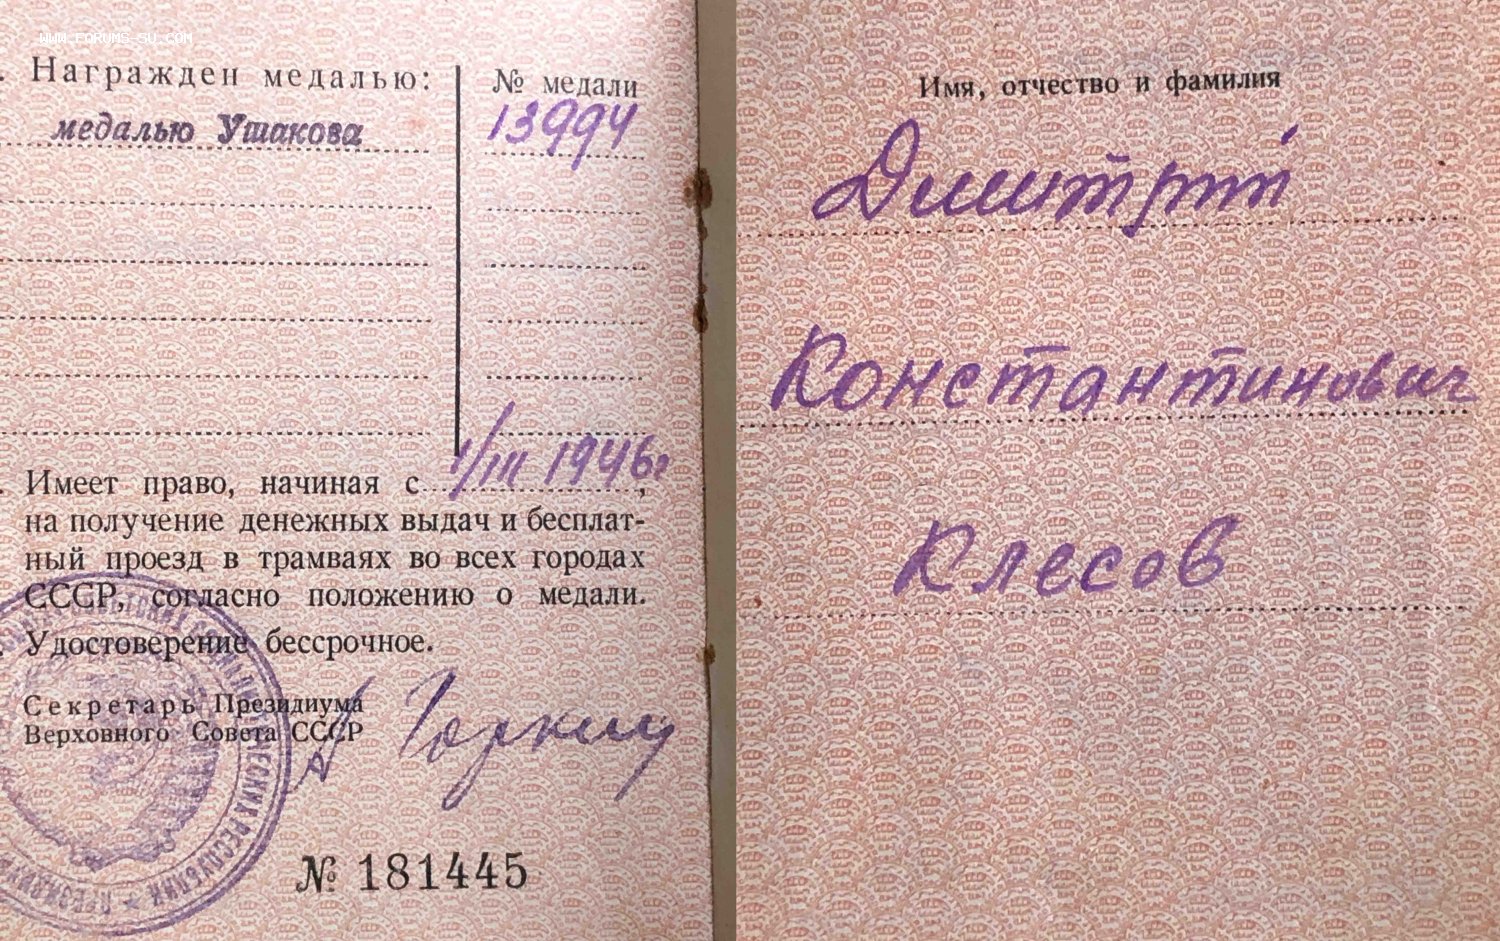 WWW.FORUMS-SU.COM
. Награжден медалью:
№ медали
медалью Ушакова
13994
1/III 1946г
. Имеет право, начиная с ,
на получение денежных выдач и бесплат-
ный проезд в трамваях во всех городах
СССР, согласно положению о медали.
. Удостоверение бессрочное.
Секретарь Президиума
Верховного Совета СССР
А Горкин
№ 181445
Имя, отчество и фамилия
Димитрий
Константинович
Клесов